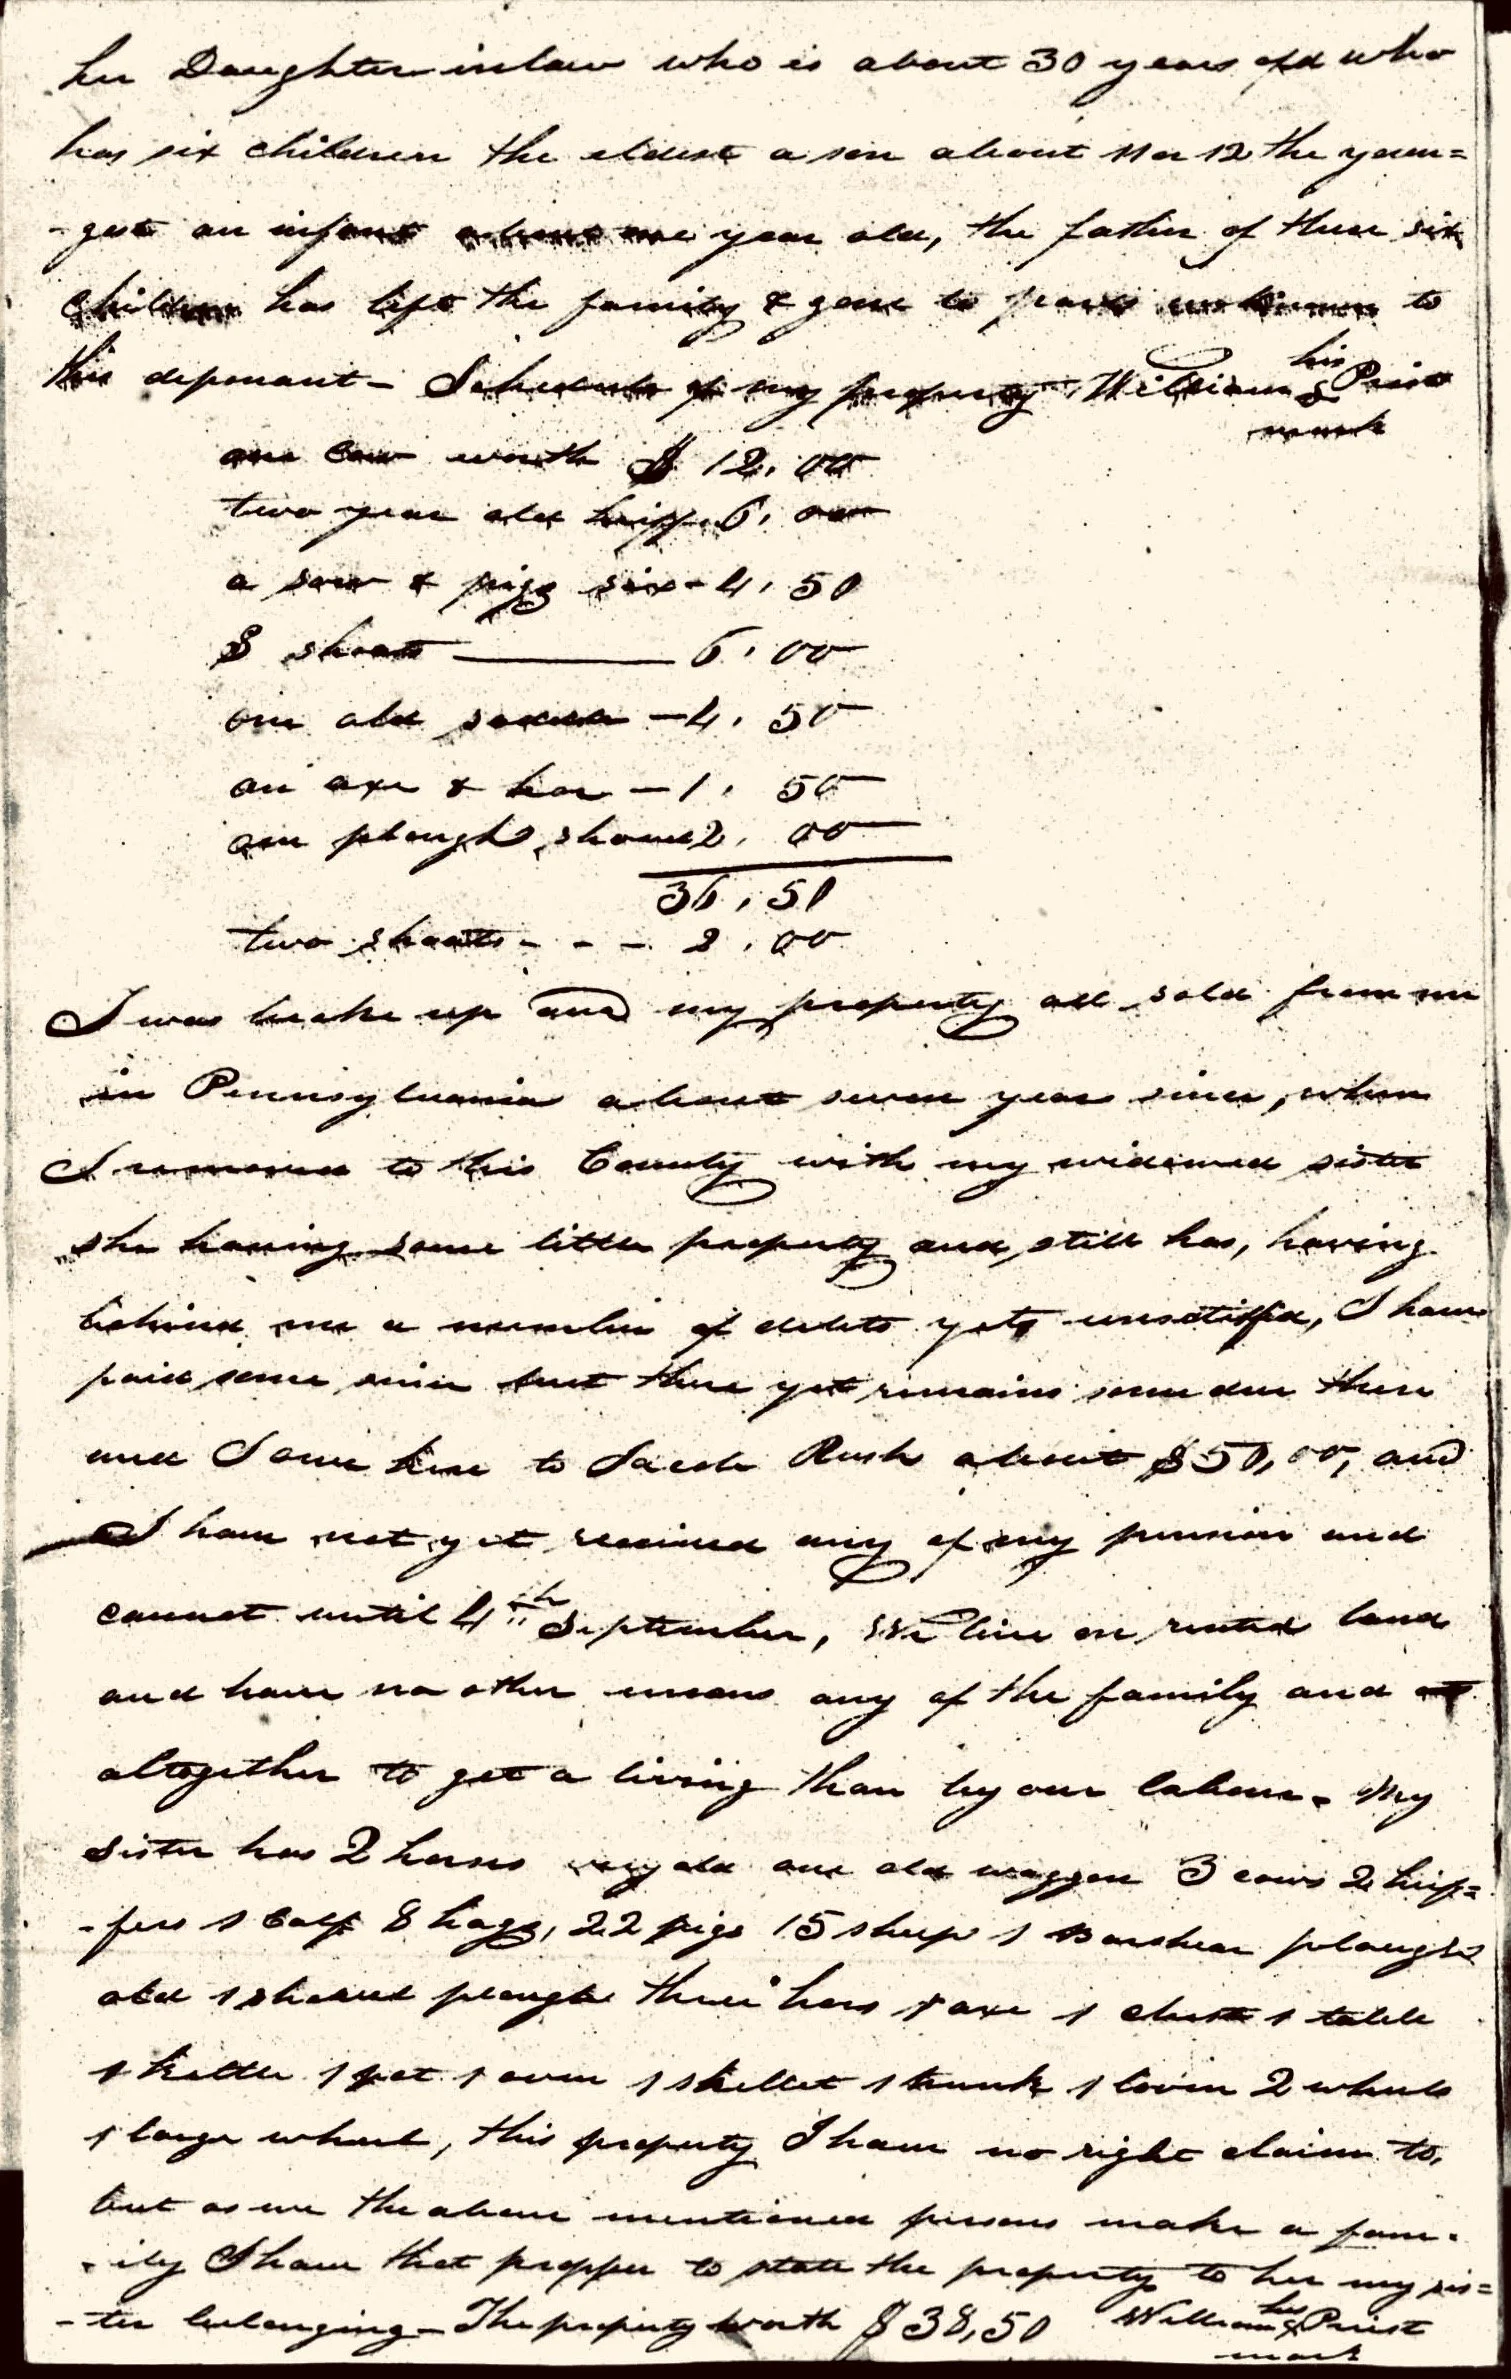 her Daughter inlaw who is about 30 years old who
has six children the eldest a son about 11 or 12 the youn=
-gest an infant about one year old, the father of these six
children has left the family & gone to parts unknown to
this deponant - Schedule of my property - William his X mark Priest
one Cow worth $ 12.00
two year old heiff. 6.00
a sow & pigs six - 4.50
8 shoats — 6.00
one old saddle - 4.50
an axe & hoe - 1.50
one plough shovel 2.00
36.50
two shoats - - - 2.00
I was broke up and my property all sold from me
in Pennsylvania about seven year since, when
I removed to this County with my widowed sister
she having some little property and still has, having
behind me a number of debts yet unsatisfied, I have
paid some since but there yet remains some due there
and I owe here to Jacob Rush about $50,00, and
I have not yet received any of my pension and
cannot until 4th September, We live on rented land
and have no other means any of the family and
altogether to get a living than by our labour. My
sister has 2 horses very old one old waggon 3 cows 2 heif=
-fers 1 Calf 8 hogs, 22 pigs 15 sheep 1 Barshear plough
old 1 shovel plough three hoes 1 axe 1 chest 1 table
1 kettle 1 pot 1 oven 1 skillet 1 trunk 1 loom 2 wheels
1 large wheel, this property I have no right claim to,
but as we the above mentioned persons make a fam-
-ily I have thot propper to state the property to her my sis=
-ter belonging - The property worth $38,50 William his X mark Priest